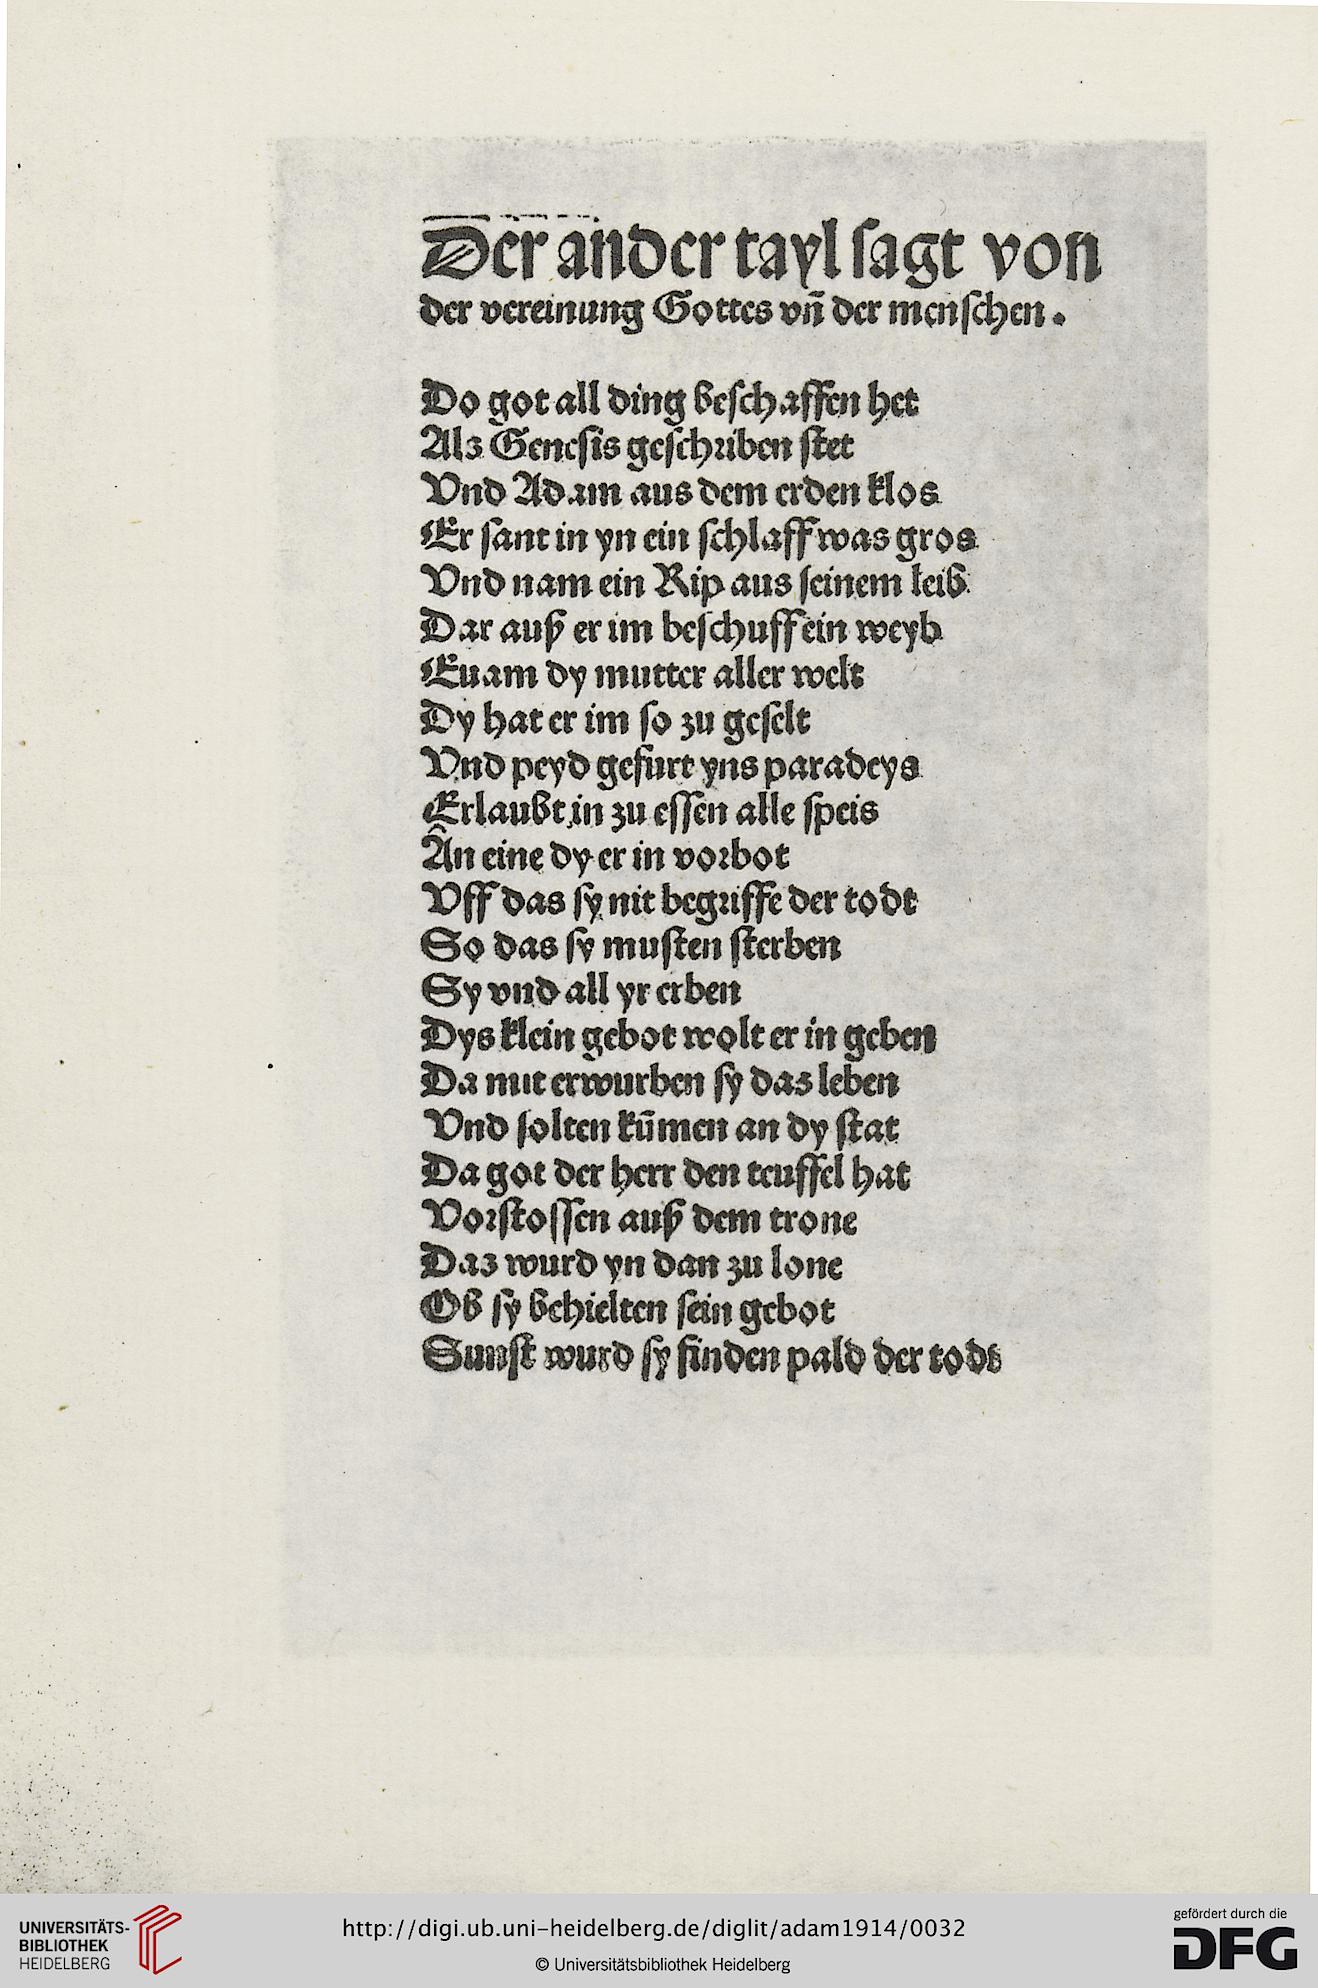 Der ander tayl sagt von
der vereinung Gottes vñ der menschen.
Do got all ding beschaffen het
Alz Genesis geschriben stet
Vnd Adam aus dem erden klos
Er sant in yn ein schlaff was gros
Vnd nam ein Rip aus seinem leib
Dar auß er im beschuff ein weyb
Euam dy mutter aller welt
Dy hat er im so zu geselt
Vnd peyd gefurt yns paradeys
Erlaubt in zu essen alle speis
Ân eine dy er in vorbot
Vff das sy nit begriffe der todt
So das sy musten sterben
Sy vnd all yr erben
Dys klein gebot wolt er in geben
Da mit erwurben sy daz leben
Vnd solten kūmen an dy stat
Da got der herr den teuffel hat
Vorstossen auß dem trone
Daz wurd yn dan zu lone
Ob sy behielten sein gebot
Sunst wurd sy finden pald der todt
UNIVERSITÄTS-
BIBLIOTHEK
HEIDELBERG
http://digi.ub.uni-heidelberg.de/diglit/adam1914/0032
© Universitätsbibliothek Heidelberg
gefördert durch die
DFG